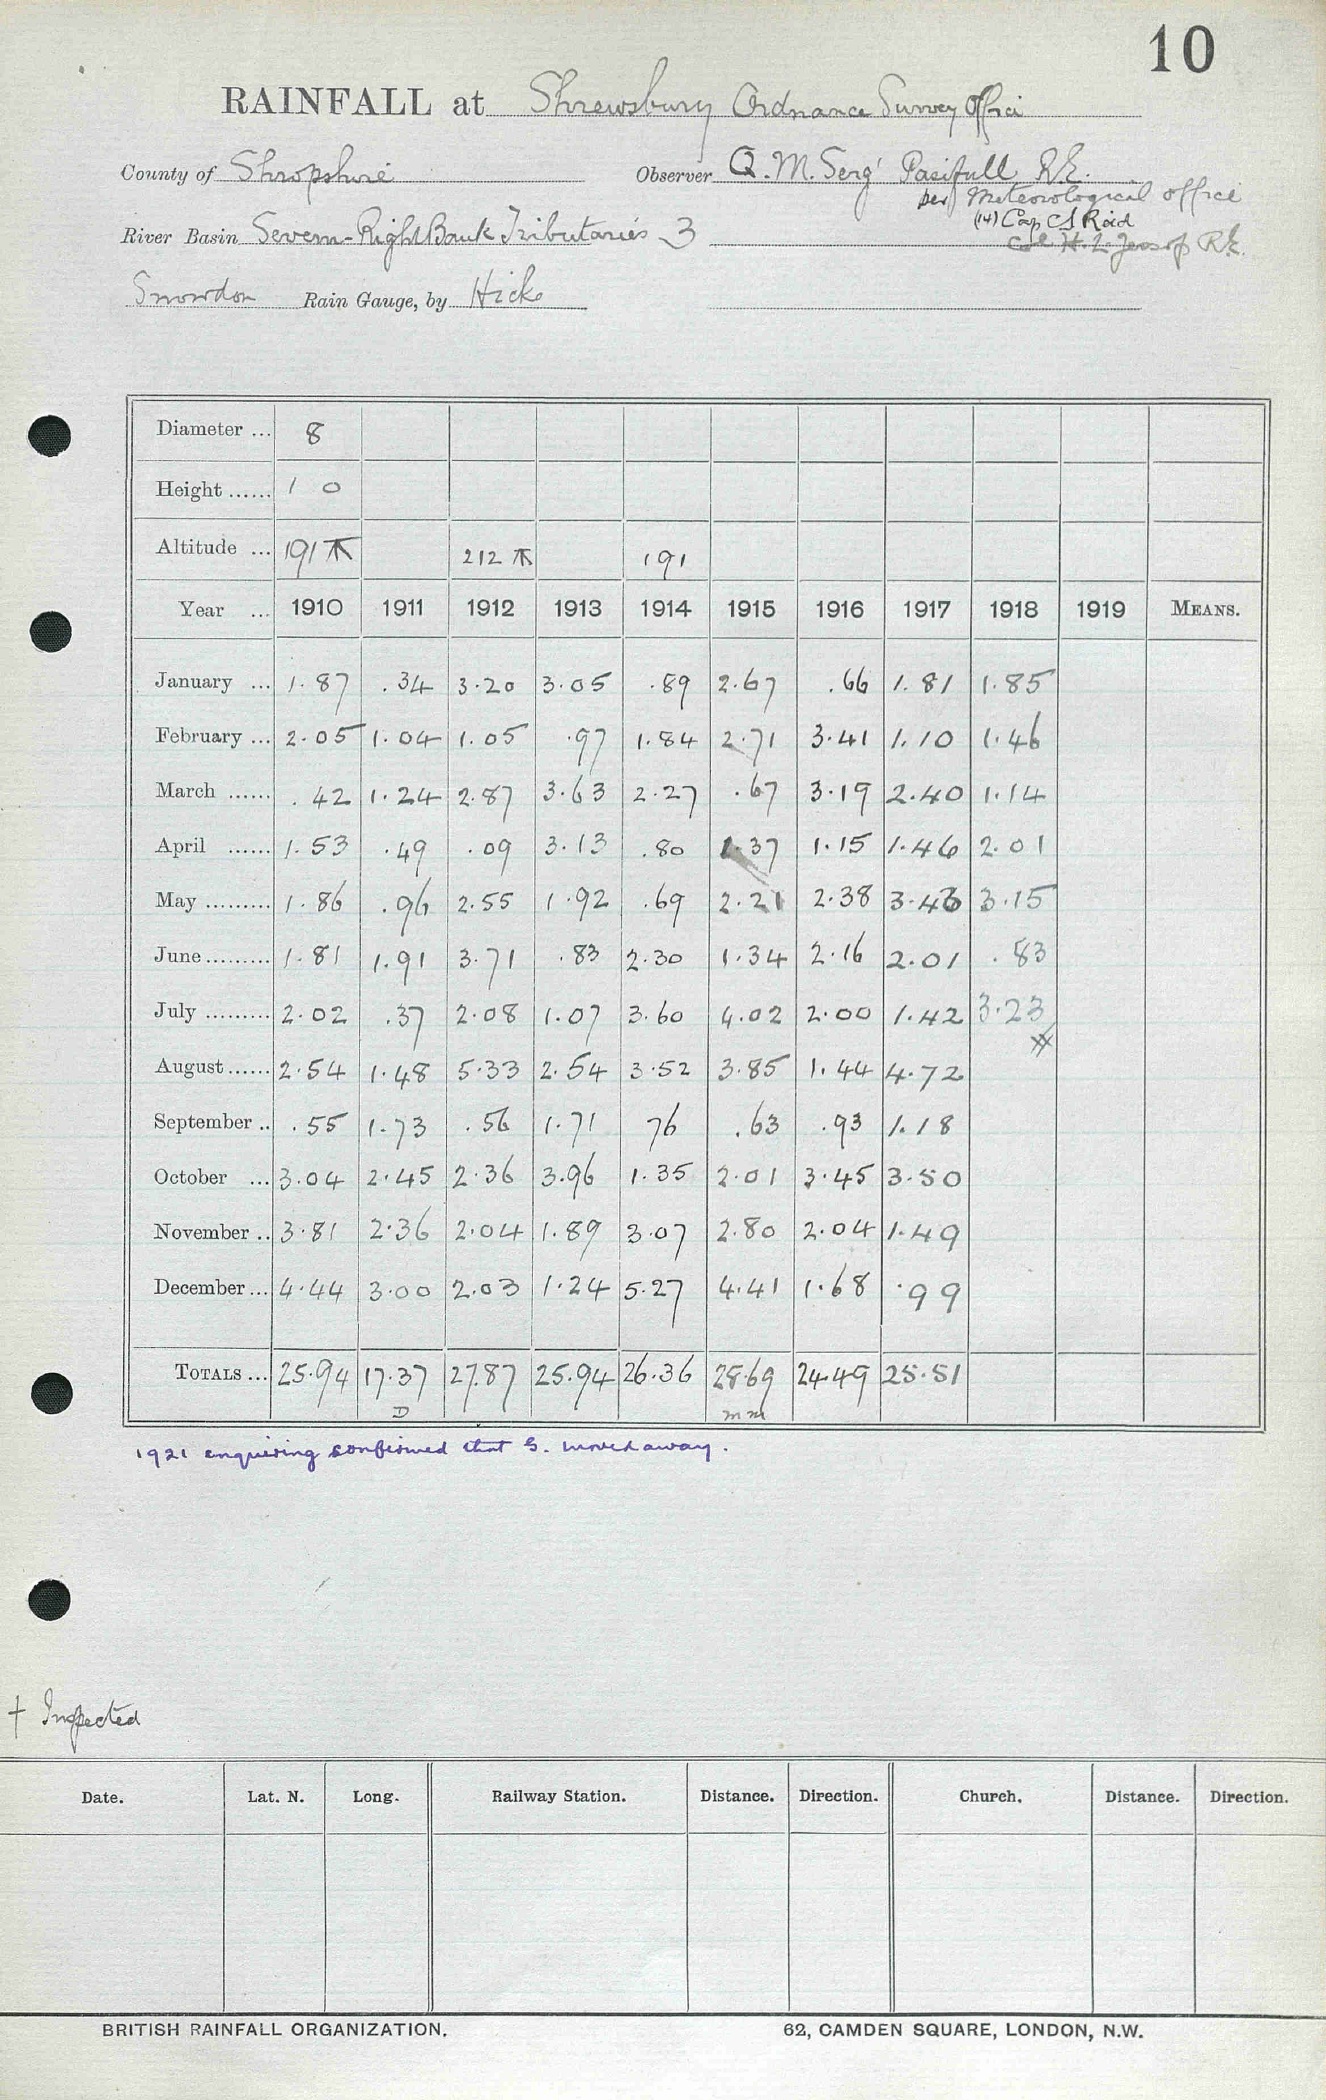 10
RAINFALL at Shrewsbury Ordnance Survey Office
County of Shropshire Observer Q. M. Serg' Pasifull R.E.
per Meteorological office
River Basin Severn-Right Bank Tributaries 3 (14) Cap C S Reid
Col H. L. Jessop R.E.
Snowdon Rain Gauge, by Hicks
Diameter ... 8
Height ...... 1 0
Altitude ... 191 212 191
Year ... 1910 1911 1912 1913 1914 1915 1916 1917 1918 1919 MEANS.
January ... 1.87 .34 3.20 3.05 .89 2.67 .66 1.81 1.85
February ... 2.05 1.04 1.05 .97 1.84 2.71 3.41 1.10 1.46
March ...... .42 1.24 2.87 3.63 2.27 .67 3.19 2.40 1.14
April ...... 1.53 .49 .09 3.13 .80 1.37 1.15 1.46 2.01
May ......... 1.86 .96 2.55 1.92 .69 2.21 2.38 3.43 3.15
June ......... 1.81 1.91 3.71 .83 2.30 1.34 2.16 2.01 .83
July ......... 2.02 .37 2.08 1.07 3.60 4.02 2.00 1.42 3.23
August ...... 2.54 1.48 5.33 2.54 3.52 3.85 1.44 4.72
September .. .55 1.73 .56 1.71 76 .63 .93 1.18
October ... 3.04 2.45 2.36 3.96 1.35 2.01 3.45 3.50
November .. 3.81 2.36 2.04 1.89 3.07 2.80 2.04 1.49
December ... 4.44 3.00 2.03 1.24 5.27 4.41 1.68 .99
TOTALS ... 25.94 17.37 27.87 25.94 26.36 28.69 24.49 25.51
D mm
1921 enquiring confirmed that S. moved away.
† Inspected
Date. Lat. N. Long. Railway Station. Distance. Direction. Church. Distance. Direction.
BRITISH RAINFALL ORGANIZATION. 62, CAMDEN SQUARE, LONDON, N.W.